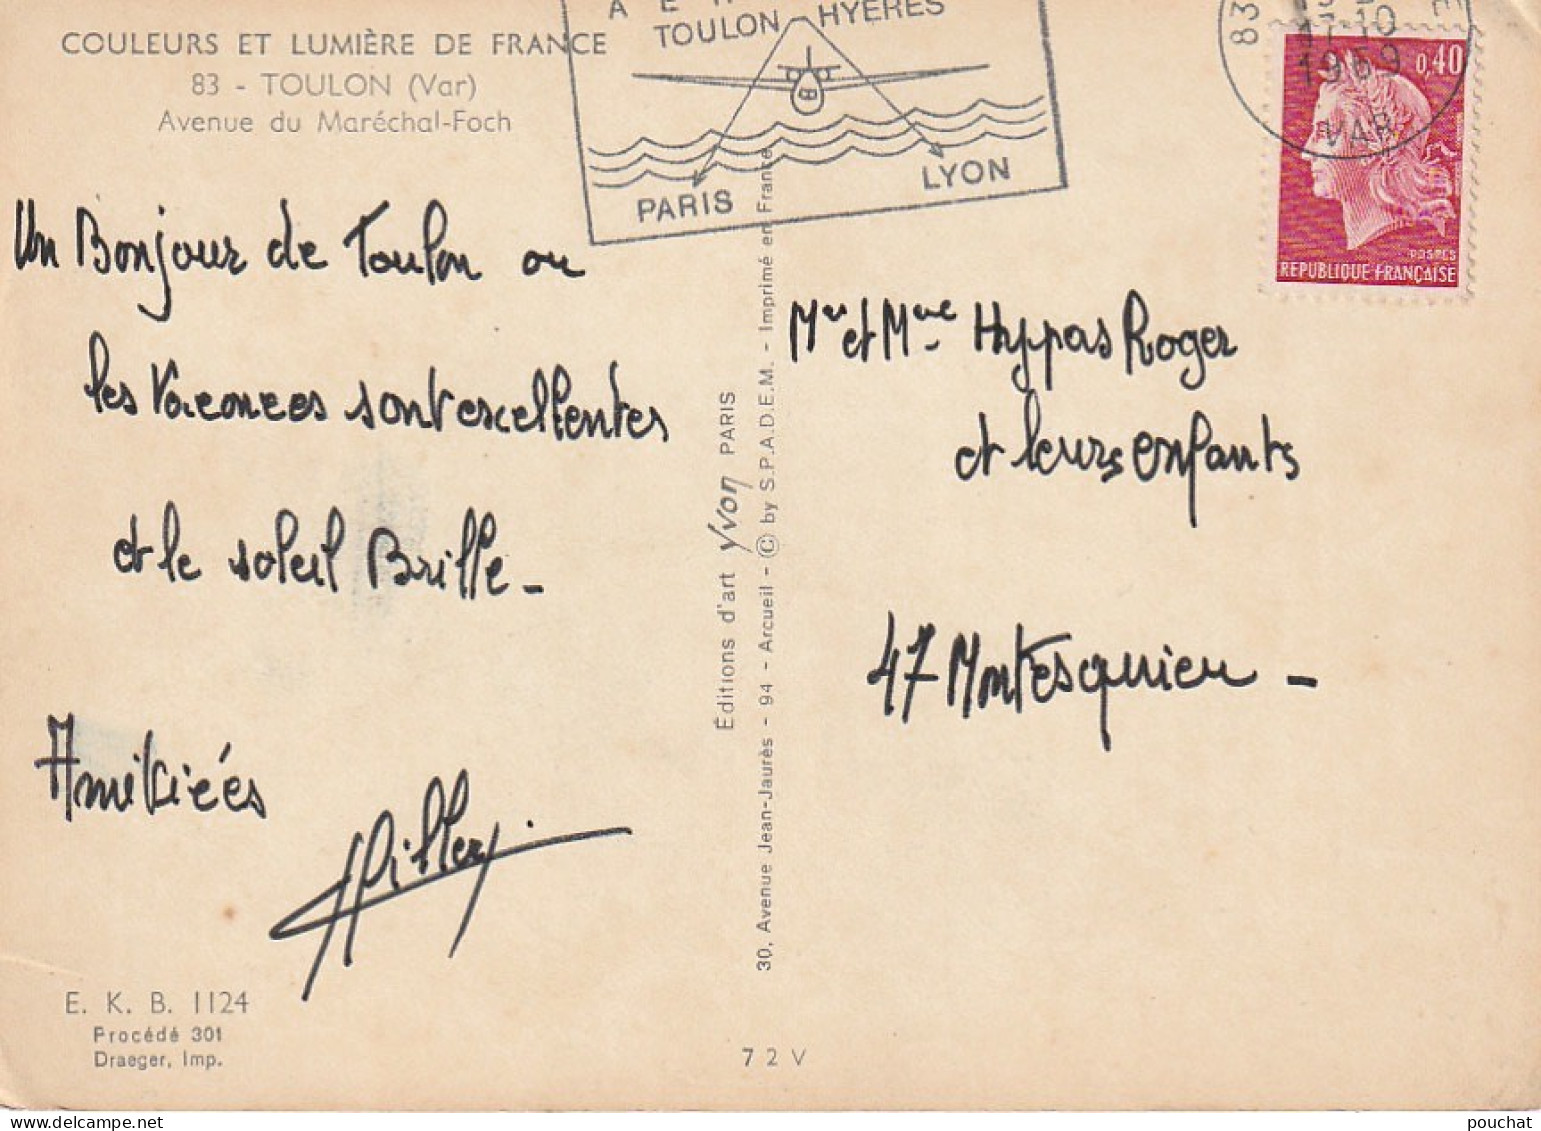 COULEURS ET LUMIÈRE DE FRANCE
83 - TOULON (Var)
Avenue du Maréchal-Foch
TOULON HYERES
PARIS
LYON
83
10
1969
VAR
0,40
POSTES
REPUBLIQUE FRANÇAISE
Un Bonjour de Toulon ou
les Vacances sont excellentes
et le soleil Brille -
Amitiéés
Editions d'art Yvon PARIS
30, Avenue Jean-Jaurès - 94 - Arcueil - © by S.P.A.D.E.M. - Imprimé en France
Mr et Mme Hyppas Roger
et leurs enfants
47 Montesquieu -
E. K. B. 1124
Procédé 301
Draeger, Imp.
72 V
pouchat